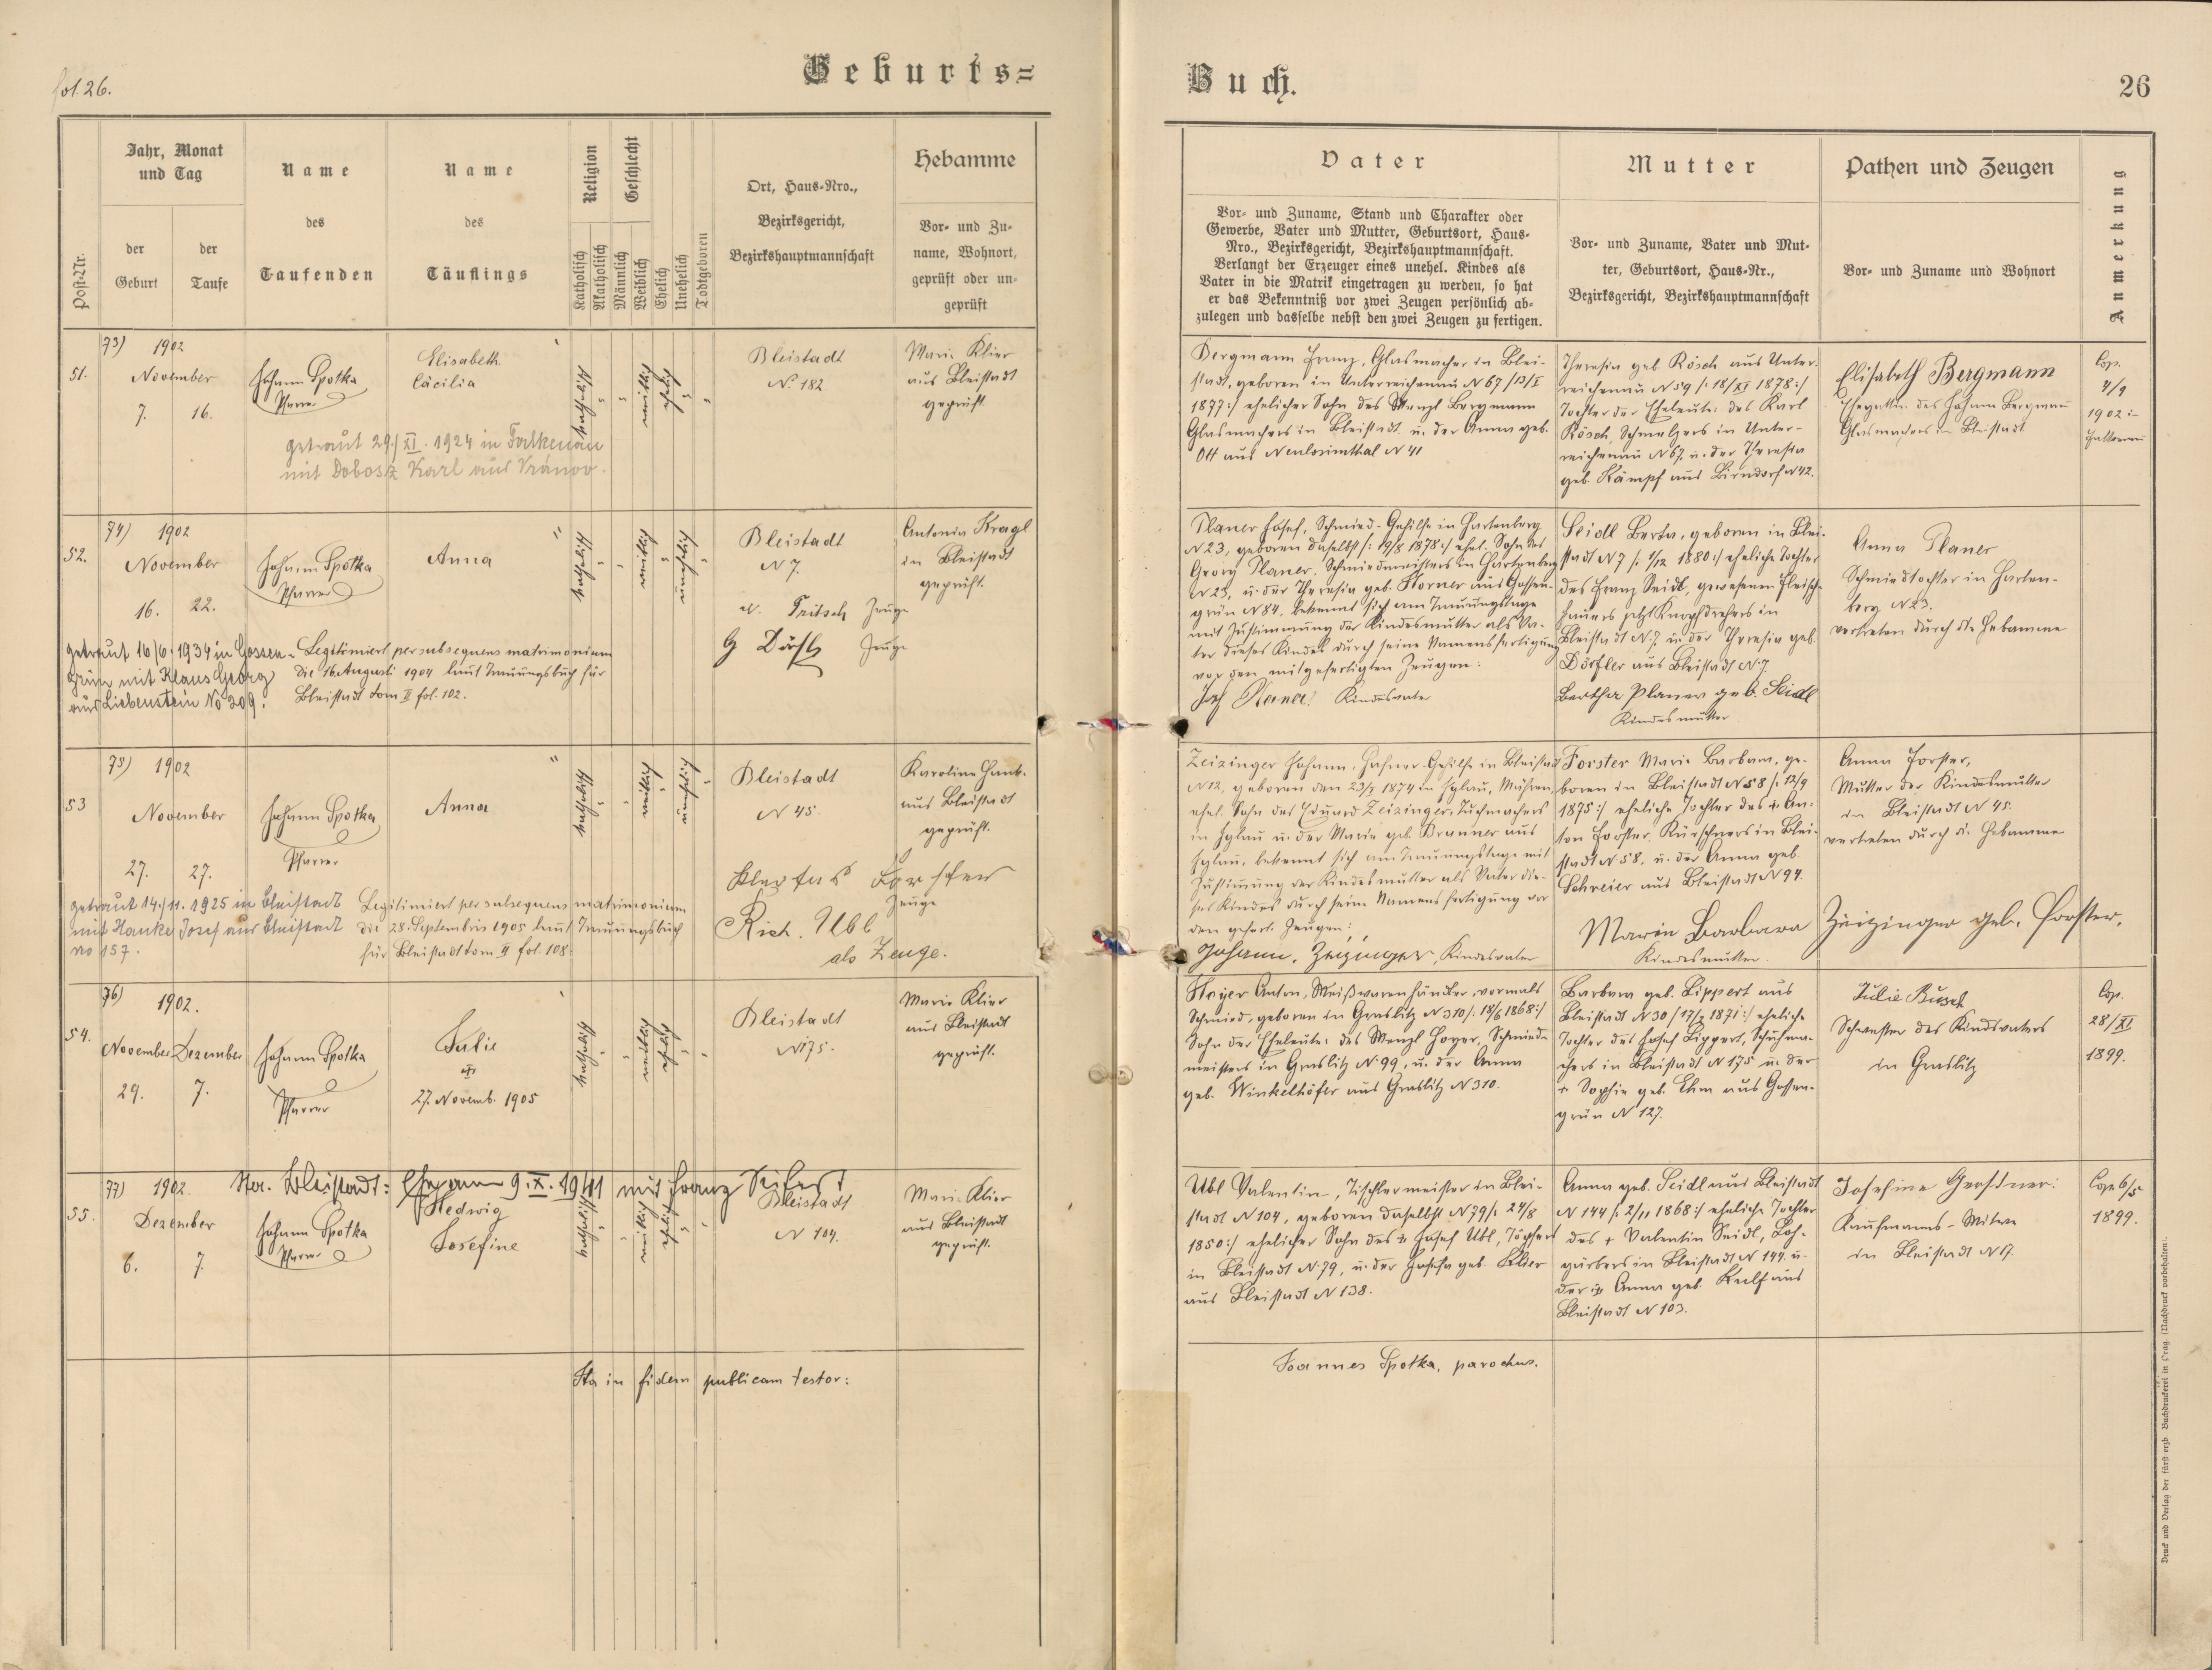 fol. 26.
Geburts=
Buch.
26
Post-Nr.
Jahr, Monat
und Tag
der
Geburt
der
Taufe
Name
des
Taufenden
Name
des
Täuflings
Religion
Katholisch
Akatholisch
Geschlecht
Männlich
Weiblich
Ehelich
Unehelich
Todtgeboren
Ort, Haus-Nro.,
Bezirksgericht,
Bezirkshauptmannschaft
Hebamme
Vor- und Zu-
name, Wohnort,
geprüft oder un-
geprüft
Vater
Vor- und Zuname, Stand und Charakter oder
Gewerbe, Vater und Mutter, Geburtsort, Haus-
Nro., Bezirksgericht, Bezirkshauptmannschaft.
Verlangt der Erzeuger eines unehel. Kindes als
Vater in die Matrik eingetragen zu werden, so hat
er das Bekenntniß vor zwei Zeugen persönlich ab-
zulegen und dasselbe nebst den zwei Zeugen zu fertigen.
Mutter
Vor- und Zuname, Vater und Mut-
ter, Geburtsort, Haus-Nr.,
Bezirksgericht, Bezirkshauptmannschaft
Pathen und Zeugen
Vor- und Zuname und Wohnort
Anmerkung
51.
73) 1902
November
7. 16.
Johann Spotka
Pfarrer
Elisabeth
Cäcilia
katholisch
weiblich
ehelich
Bleistadt
N. 182
Marie Klier
aus Bleistadt
geprüft.
getraut 29/XI. 1924 in Falkenau
mit Dobosz Karl aus Vránov.
Bergmann Franz, Glasmacher in Blei-
stadt, geboren in Unterreichenau N 67 /13/I
1877:/ ehelicher Sohn des Wenzl Bergmann
Glasmachers in Bleistadt u. der Anna geb.
Ott aus Neulosimthal N 41
Theresia geb. Rösch aus Unter-
reichenau N 59 /: 18/XI 1878:/
Tochter der Eheleute: des Karl
Rösch, Schmelzers in Unter-
reichenau N 67. u. der Theresia
geb. Kämpf aus Birndorf N 42.
Elisabeth Bergmann
Ehegattin des Johann Bergmann
Glasmachers in Bleistadt.
Cop.
4/9
1902 in
Falkenau
52.
74) 1902
November
16. 22.
Johann Spotka
Pfarrer
Anna
katholisch
weiblich
unehelich
Bleistadt
N 7.
Fritsch Zeuge
G Dörfl Zeuge
Antonia Kragl
in Bleistadt
geprüft.
getraut 16/6. 1934 in Gossen-
grün mit Klaus Georg
aus Liebenstein No 209.
Legitimiert per subsequens matrimonium
die 16. Augusti 1904 laut Trauungsbuch für
Bleistadt tom II fol. 102.
Planer Josef, Schmied-Gehilfe in Hartenberg
N 23, geboren daselbst /: 19/8 1878:/ ehel. Sohn des
Georg Planer, Schmiedemeisters in Hartenberg
N 23, u. der Theresia geb. Horner aus Gossen-
grün N 84. bekennt sich am Trauungstage
mit Zustimmung der Kindesmutter als Va-
ter dieses Kindes durch seine Namensfertigung
vor den mitgefertigten Zeugen:
Josef Planer Kindesvater
Seidl Berta, geboren in Blei-
stadt N 7 /: 1/12 1880:/ eheliche Tochter
des Franz Seidl, gewesenen Fleisch-
hauers jetzt Knopfdrehers in
Bleistadt N 7. u. der Theresia geb.
Dörfler aus Bleistadt N 7
Bertha Planer geb. Seidl
Kindesmutter
Anna Planer
Schmiedtochter in Harten-
berg N 23.
vertreten durch die Hebamme
53
75) 1902
November
27. 27.
Johann Spotka
Pfarrer
Anna
katholisch
weiblich
unehelich
Bleistadt
N 45.
Forster
Zeuge
Rich. Ubl
als Zeuge.
Karoline Hank.
aus Bleistadt
geprüft.
getraut 14./11. 1925 in Bleistadt
mit Hanke Josef aus Bleistadt
no 157.
Legitimiert per subsequens matrimonium
die 28. Septembris 1905 laut Trauungsbuch
für Bleistadt tom. II fol. 108.
Zeizinger Johann, Hafner-Gehilfe in Bleistadt
N 12, geboren den 23/I 1874 in Iglau, Mähren,
ehel. Sohn des Eduard Zeizinger, Tuchmachers
in Iglau u. der Marie geb. Branner aus
Iglau, bekennt sich am Trauungstage mit
Zustimmung der Kindesmutter als Vater die-
ses Kindes durch seine Namensfertigung vor
den gefert. Zeugen:
Johann Zeizinger, Kindesvater
Forster Marie Barbara, ge-
boren in Bleistadt N 58 /: 12/9
1875:/ eheliche Tochter des † An-
ton Forster, Kürschners in Blei-
stadt N 58. u. der Anna geb.
Schreier aus Bleistadt N 94.
Maria Barbara Zeizinger geb. Forster.
Kindesmutter.
Anna Forster,
Mutter der Kindesmutter
in Bleistadt N 45.
vertreten durch die Hebamme
54.
76) 1902.
November Dezember
29. 7.
Johann Spotka
Pfarrer
Julie
27. Novemb. 1905
katholisch
weiblich
ehelich
Bleistadt
N 175.
Marie Klier
aus Bleistadt
geprüft.
Hoyer Anton, Weißwarenhändler, vormals
Schmied, geboren in Graslitz N 310 /: 18/6 1868:/
Sohn der Eheleute: des Wenzl Hoyer, Schmiede-
meisters in Graslitz N 99, u. der Anna
geb. Winkelhöfer aus Graslitz N 310.
Barbara geb. Lippert aus
Bleistadt N 30 /17/2 1871:/ eheliche
Tochter des Josef Lippert, Schuhma-
chers in Bleistadt N 175 u. der
† Sophie geb. Ehm aus Gossen-
grün N 127.
Julie Busch
Schwester des Kindsvaters
in Graslitz
Cop.
28/XI
1899.
55.
77) 1902.
Dezember
6. 7.
Bleistadt: Ehe am 9. X. 1941 mit Franz Seifert
Johann Spotka
Pfarrer
Hedwig
Josefine
katholisch
weiblich
ehelich
Bleistadt
N 104.
Marie Klier
aus Bleistadt
geprüft.
Ubl Valentin, Tischlermeister in Blei-
stadt N 104, geboren daselbst N 79 /: 24/8
1850:/ ehelicher Sohn des † Josef Ubl, Töpfers
in Bleistadt N 79, u. der Josefa geb. Klier
aus Bleistadt N 138.
Anna geb. Seidl aus Bleistadt
N 144 /: 2/11 1868:/ eheliche Tochter
des † Valentin Seidl, Loh-
gärbers in Bleistadt N 144. u.
der † Anna geb. Kulf aus
Bleistadt N 103.
Josefine Gerstner:
Kaufmanns-Witwe
in Bleistadt N 17.
Cop. 6/5
1899.
Ita in fidem publicam testor:
Joannes Spotka, parochus.
Druck und Verlag der fürst-erzb. Buchdruckerei in Prag. (Nachdruck vorbehalten.)